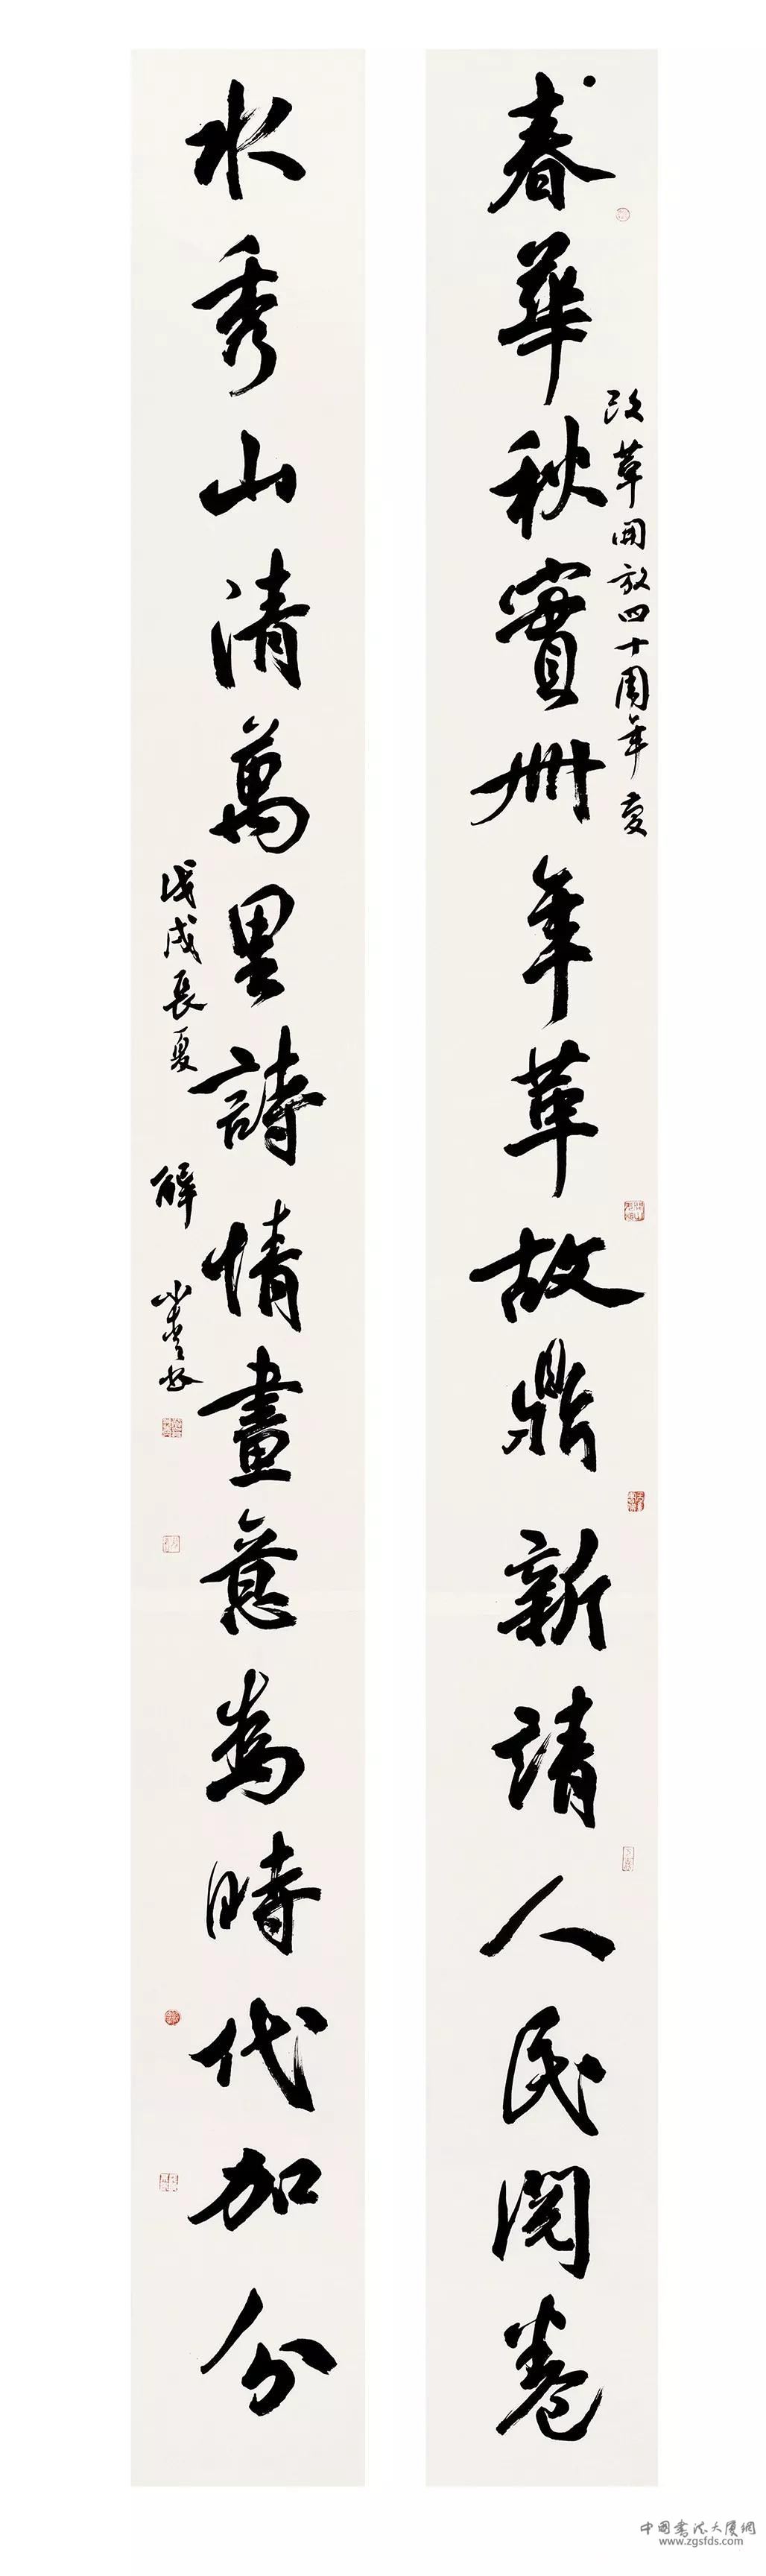 春華秋實卌年革故鼎新請人民閱卷
改革開放四十周年
水秀山清萬里詩情畫意為時代加分
戊戌長夏
解小青書
中国书法大厦網
www.zgsfds.com